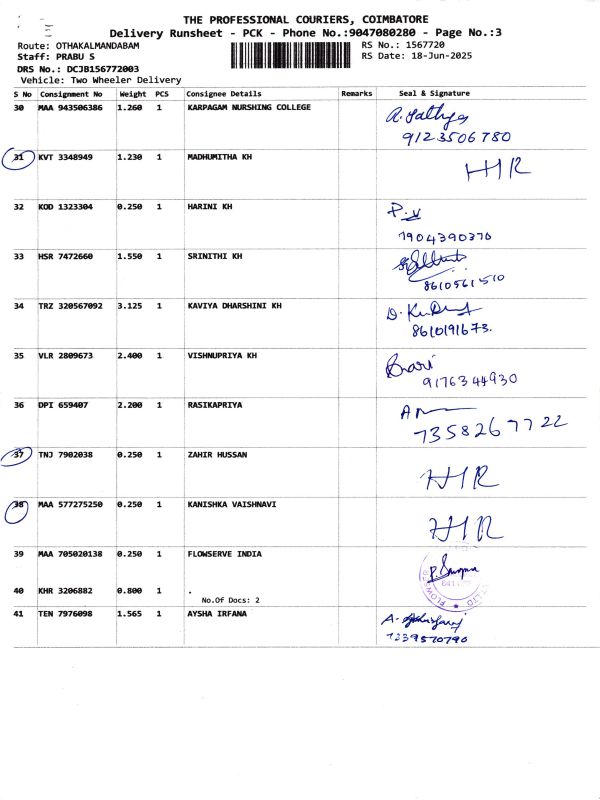 THE PROFESSIONAL COURIERS, COIMBATORE
Delivery Runsheet - PCK - Phone No.:9047080280 - Page No.:3
Route: OTHAKALMANDABAM RS No.: 1567720
Staff: PRABU S RS Date: 18-Jun-2025
DRS No.: DCJB156772003
Vehicle: Two Wheeler Delivery
S No Consignment No Weight PCS Consignee Details Remarks Seal & Signature
30 MAA 943506386 1.260 1 KARPAGAM NURSHING COLLEGE
9123506780
31 KVT 3348949 1.230 1 MADHUMITHA KH HIR
32 KOD 1323304 0.250 1 HARINI KH
7904390370
33 HSR 7472660 1.550 1 SRINITHI KH
8610561510
34 TRZ 320567092 3.125 1 KAVIYA DHARSHINI KH
8610191673.
35 VLR 2809673 2.400 1 VISHNUPRIYA KH
9176344930
36 DPI 659407 2.200 1 RASIKAPRIYA
7358267722
37 TNJ 7902038 0.250 1 ZAHIR HUSSAN HIR
38 MAA 577275250 0.250 1 KANISHKA VAISHNAVI HIR
39 MAA 705020138 0.250 1 FLOWSERVE INDIA
40 KHR 3206882 0.800 1 .
No.Of Docs: 2
41 TEN 7976098 1.565 1 AYSHA IRFANA
7239570790